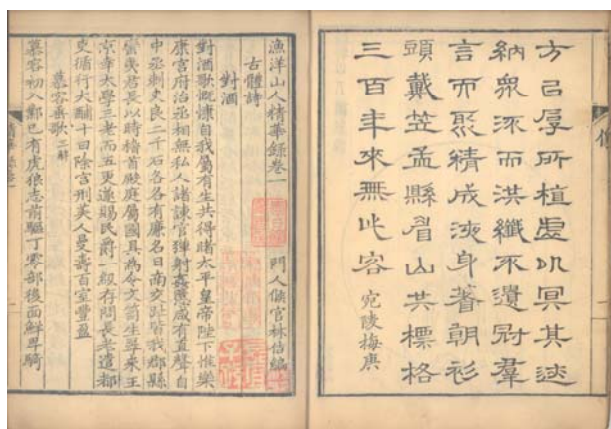 方已厚所植虛以冥其迹
納眾流而洪纖不遺冠羣
言而聚精成液身著朝衫
頭戴笠孟縣眉山共標格
三百年來無此容 宛陵梅庚
漁洋山人精華錄卷一
門人侯官林佶編
古體詩
對酒
對酒歌慨慷自我屬有生共得睹太平皇帝陛下惟樂
康官府治丞相無私人諸諫官彈射 咸有直聲自
中丞刺史良二千石各各有廉名日南交趾皆我郡縣
蠻夷君長以時稽首殿庭屬國具為令文翁生 來王
京華大學三老而五更遂賜民爵一級存問長老遣都
吏循行大酺十日除宮刑美人曼壽百室豐盈
慕容垂歌 三解
慕容初入鄴已有虎狼志前驅丁零部後面鮮卑騎